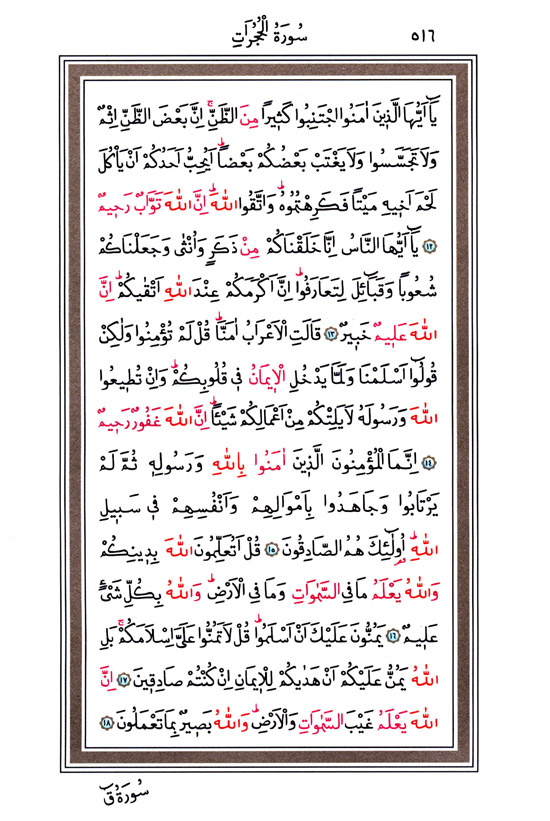 سُورَةُ الْحُجُرَاتِ ٥١٦
يَٓا اَيُّهَا الَّذ۪ينَ اٰمَنُوا اجْتَنِبُوا كَث۪يراً مِنَ الظَّنِّۘ اِنَّ بَعْضَ الظَّنِّ اِثْمٌ
وَلَا تَجَسَّسُوا وَلَا يَغْتَبْ بَعْضُكُمْ بَعْضاًۜ اَيُحِبُّ اَحَدُكُمْ اَنْ يَأْكُلَ
لَحْمَ اَخ۪يهِ مَيْتاً فَكَرِهْتُمُوهُۜ وَاتَّقُوا اللّٰهَۜ اِنَّ اللّٰهَ تَوَّابٌ رَح۪يمٌ
﴿١٢﴾ يَٓا اَيُّهَا النَّاسُ اِنَّا خَلَقْنَاكُمْ مِنْ ذَكَرٍ وَاُنْثٰى وَجَعَلْنَاكُمْ
شُعُوباً وَقَبَٓائِلَ لِتَعَارَفُواۜ اِنَّ اَكْرَمَكُمْ عِنْدَ اللّٰهِ اَتْقٰيكُمْۜ اِنَّ
اللّٰهَ عَل۪يمٌ خَب۪يرٌ ﴿١٣﴾ قَالَتِ الْاَعْرَابُ اٰمَنَّاۜ قُلْ لَمْ تُؤْمِنُوا وَلٰكِنْ
قُولُٓوا اَسْلَمْنَا وَلَمَّا يَدْخُلِ الْا۪يمَانُ ف۪ي قُلُوبِكُمْۜ وَاِنْ تُط۪يعُوا
اللّٰهَ وَرَسُولَهُ لَا يَلِتْكُمْ مِنْ اَعْمَالِكُمْ شَيْـٔاًۜ اِنَّ اللّٰهَ غَفُورٌ رَح۪يمٌ
﴿١٤﴾ اِنَّمَا الْمُؤْمِنُونَ الَّذ۪ينَ اٰمَنُوا بِاللّٰهِ وَرَسُولِه۪ ثُمَّ لَمْ
يَرْتَابُوا وَجَاهَدُوا بِاَمْوَالِهِمْ وَاَنْفُسِهِمْ ف۪ي سَب۪يلِ
اللّٰهِۜ اُو۬لٰٓئِكَ هُمُ الصَّادِقُونَ ﴿١٥﴾ قُلْ اَتُعَلِّمُونَ اللّٰهَ بِد۪ينِكُمْ
وَاللّٰهُ يَعْلَمُ مَا فِي السَّمٰوَاتِ وَمَا فِي الْاَرْضِۜ وَاللّٰهُ بِكُلِّ شَيْءٍ
عَل۪يمٌ ﴿١٦﴾ يَمُنُّونَ عَلَيْكَ اَنْ اَسْلَمُواۜ قُلْ لَا تَمُنُّوا عَلَيَّ اِسْلَامَكُمْۚ بَلِ
اللّٰهُ يَمُنُّ عَلَيْكُمْ اَنْ هَدٰيكُمْ لِلْا۪يمَانِ اِنْ كُنْتُمْ صَادِق۪ينَ ﴿١٧﴾ اِنَّ
اللّٰهَ يَعْلَمُ غَيْبَ السَّمٰوَاتِ وَالْاَرْضِۜ وَاللّٰهُ بَص۪يرٌ بِمَا تَعْمَلُونَ ﴿١٨﴾
سُورَةُ قٓ